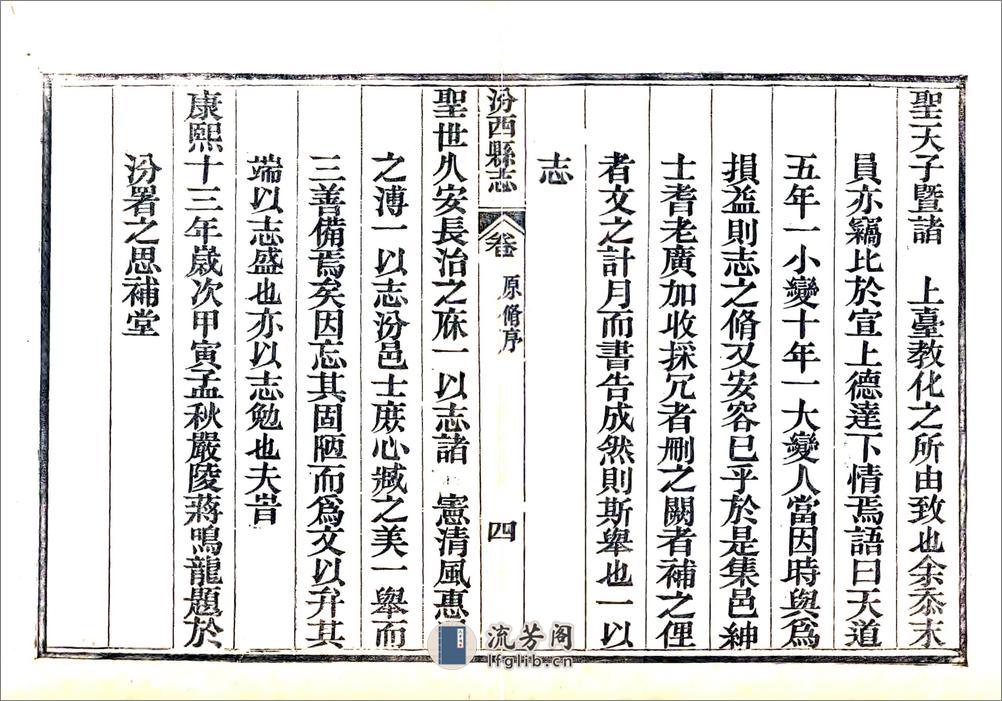 聖天子暨諸　上臺教化之所由致也余忝末
員亦竊比於宣上德達下情焉語曰天道
五年一小變十年一大變人當因時與爲
損益則志之脩又安容已乎於是集邑紳
士耆老廣加收採冗者刪之闕者補之俚
者文之計月而書告成然則斯舉也一以
志
汾西縣志
卷
原脩序
四
聖世久安長治之庥一以志諸　憲清風惠
之溥一以志汾邑士庶心臧之美一舉而
三善備焉矣因忘其固陋而爲文以弁其
端以志盛也亦以志勉也夫旹
康熙十三年歲次甲寅孟秋嚴陵蔣鳴龍題於
汾署之思補堂
流芳阁
lfglib.cn